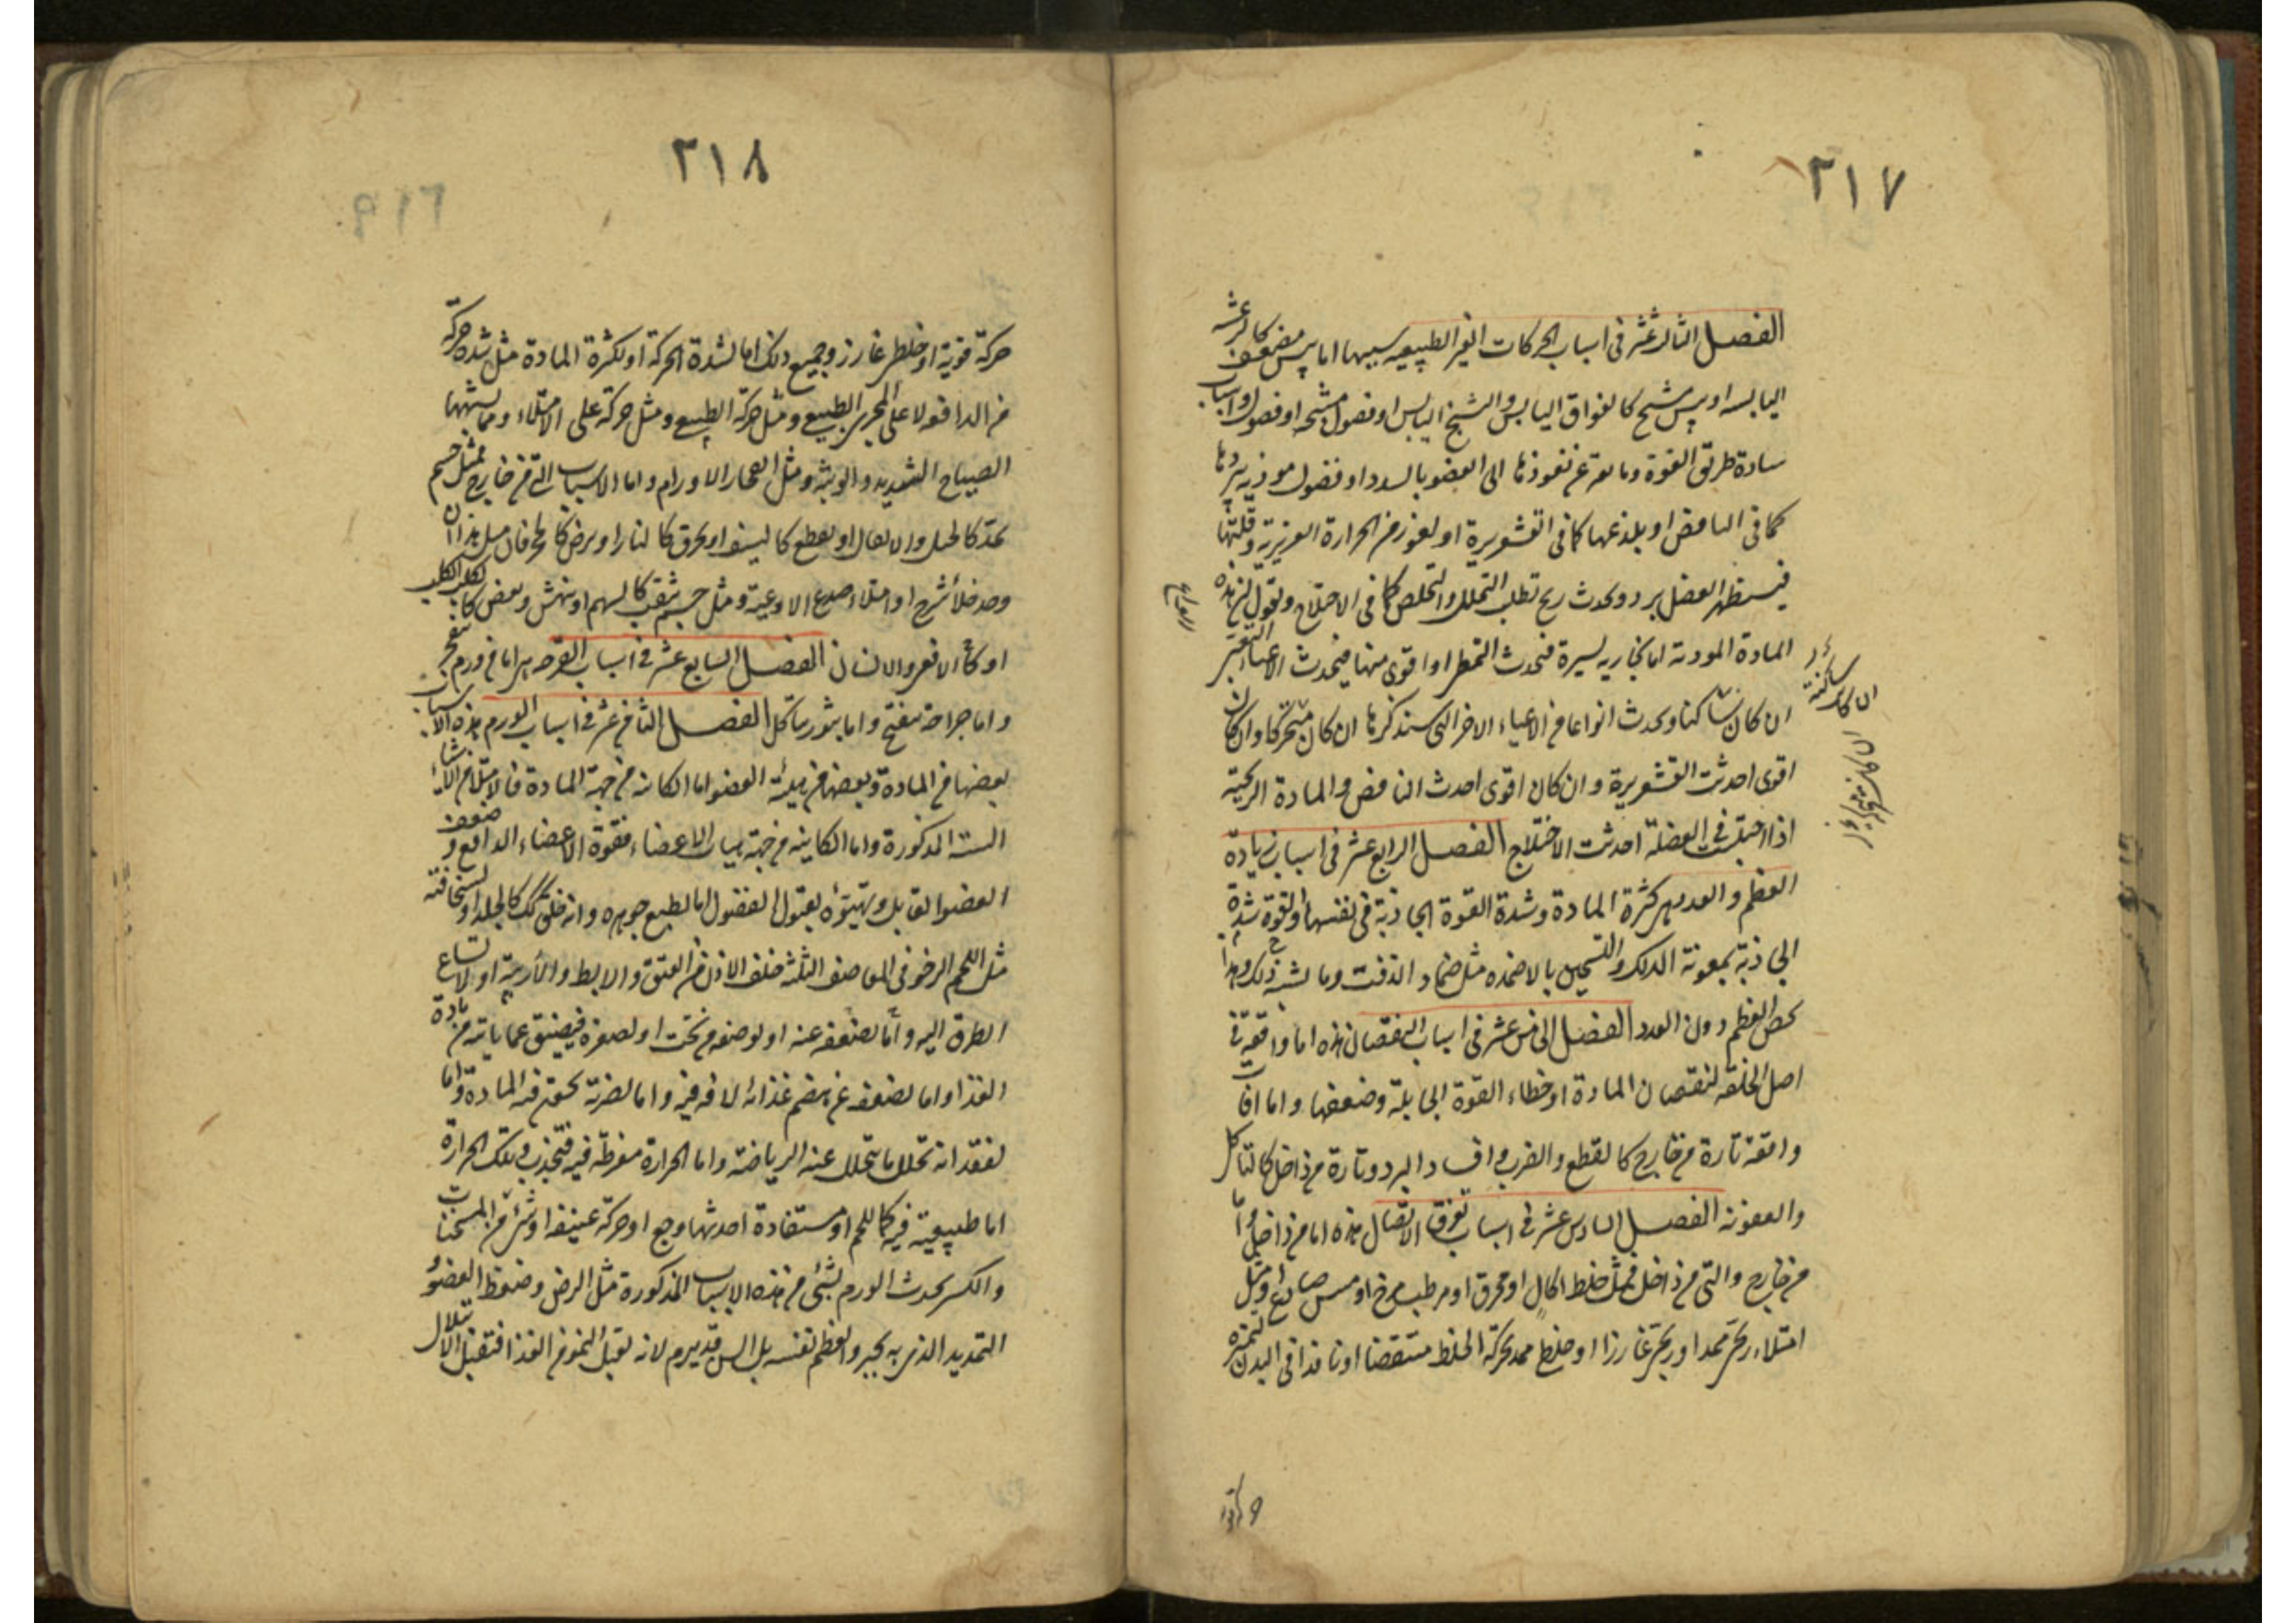 ٢١٧
الفصل الثالث عشر فى اسباب الحركات الغير الطبيعيه سببها اما يبس مضعف كالرعشه
اليابسه او يبس مشنج كالفواق اليابس والتشنج اليابس او فضول مشنجه او فضول واسباب
سادة طريق القوة ومانعة عن نفوذها الى العضو بالسدد او فضول موذيه ببردها
كما فى النافض او بلذعها كما فى القشعريرة او لغور من الحرارة الغريزية وقلتها
فيستظهر الفضل برد ويحدث ريح تطلب التحلل والتخلص كما فى الاختلاج ونقول ان هذه
المادة الموذية اما بخارية يسيرة فتحدث التمطى او اقوى منها فيحدث الاعياء التعبى
ان كان ساكنا ويحدث انواعا من الاعياء الاخر التى سنذكرها ان كان متحركا وان كان
اقوى احدثت القشعريرة وان كان اقوى احدث النافض والمادة الريحية
اذا احتبست فى العضلة احدثت الاختلاج الفصل الرابع عشر فى اسباب زيادة
العظم والعدد هى كثرة المادة وشدة القوة الجاذبة فى نفسها او لقوة شدة
الجاذبة بمعونة الدلك والتسخين بالاضمده مثل ضماد الزفت وما يشبه ذلك وهذا
يخص العظم دون العدد الفصل الخامس عشر فى اسباب النقصان هذه اما واقعة فى
اصل الخلقه لنقصان المادة او خطاء القوة الجابلة وضعفها واما افات
واقعة تارة من خارج كالقطع والضرب وافساد البرد وتارة من داخل كالتاكل
والعفونه الفصل السادس عشر فى اسباب تفرق الاتصال هذه اما من داخل واما
من خارج والتى من داخل فمثل خلط اكال او محرق او مرطب مرخ او ميبس صادع او مثل
امتلاء ريحى ممدد او ريحى غارزا او خلط ممدد بحركة الخلط منتفضا او نافذا فى البدن
٢١٨
حركة قوية او خلط غارز وجميع ذلك اما لشدة الحركة او لكثرة المادة مثل شدة حركة
من الدافعه لا على المجرى الطبيعى ومثل حركة الطبيعى ومثل حركة على الامتلاء ومما يشبهها
الصياح الشديد والوثبة ومثل انفجار الاورام واما الاسباب التى من خارج فمثل جسم
يمدد كالحبل والاثقال او يقطع كالسيف او يحرق كالنار او يرض كالحجر فان مثل هذا ان
وجد خلأ شدخ او امتلاء صدع الاوعية ومثل جسم يثقب كالسهم او ينهش ويعض كالكلب الكلب
او كالافعى والانسان الفصل السابع عشر فى اسباب القرحه هى اما من ورم ينفجر
واما جراحة تنفتح واما بثور تتاكل الفصل الثامن عشر فى اسباب الورم هذه الاسباب
بعضها من المادة وبعضها من هيئة العضو اما الكائنه من جهة المادة فالامتلاء من الاشياء
الستة المذكورة واما الكاينه من جهة هيات الاعضاء فقوة الاعضاء الدافع وضعف
العضو القابل وتهيؤه لقبول الفضول اما لطبع جوهره وانه خلق لذلك كالجلد او لسخافته
مثل اللحم الرخو فى المعاصف الثلثه خلف الاذن من العنق والابط والأربية او لاتساع
الطرق اليه واما لضعفه عنه او لوضعه من تحت او لصغره فيضيق عما ياتيه من مادة
الغذا واما لضعفه عن هضم غذائه لافه فيه واما لضربة تحقن فيه المادة واما
لفقدانه تحلل ما يتحلل عنه الرياضة واما الحرارة مفرطة فيه فتجذب وتلك الحرارة
اما طبيعية فيه كاللحم او مستفادة احدثها وجع او حركة عنيفه او شئ من المسخنات
والكسر يحدث الورم لشئ من هذه الاسباب المذكورة مثل الرض وضغط العضو و
التمديد الذى به يجبر والعظم نفسه بل السن قد يرم لانه يقبل النمو من الغذا فتقبل الابتلال